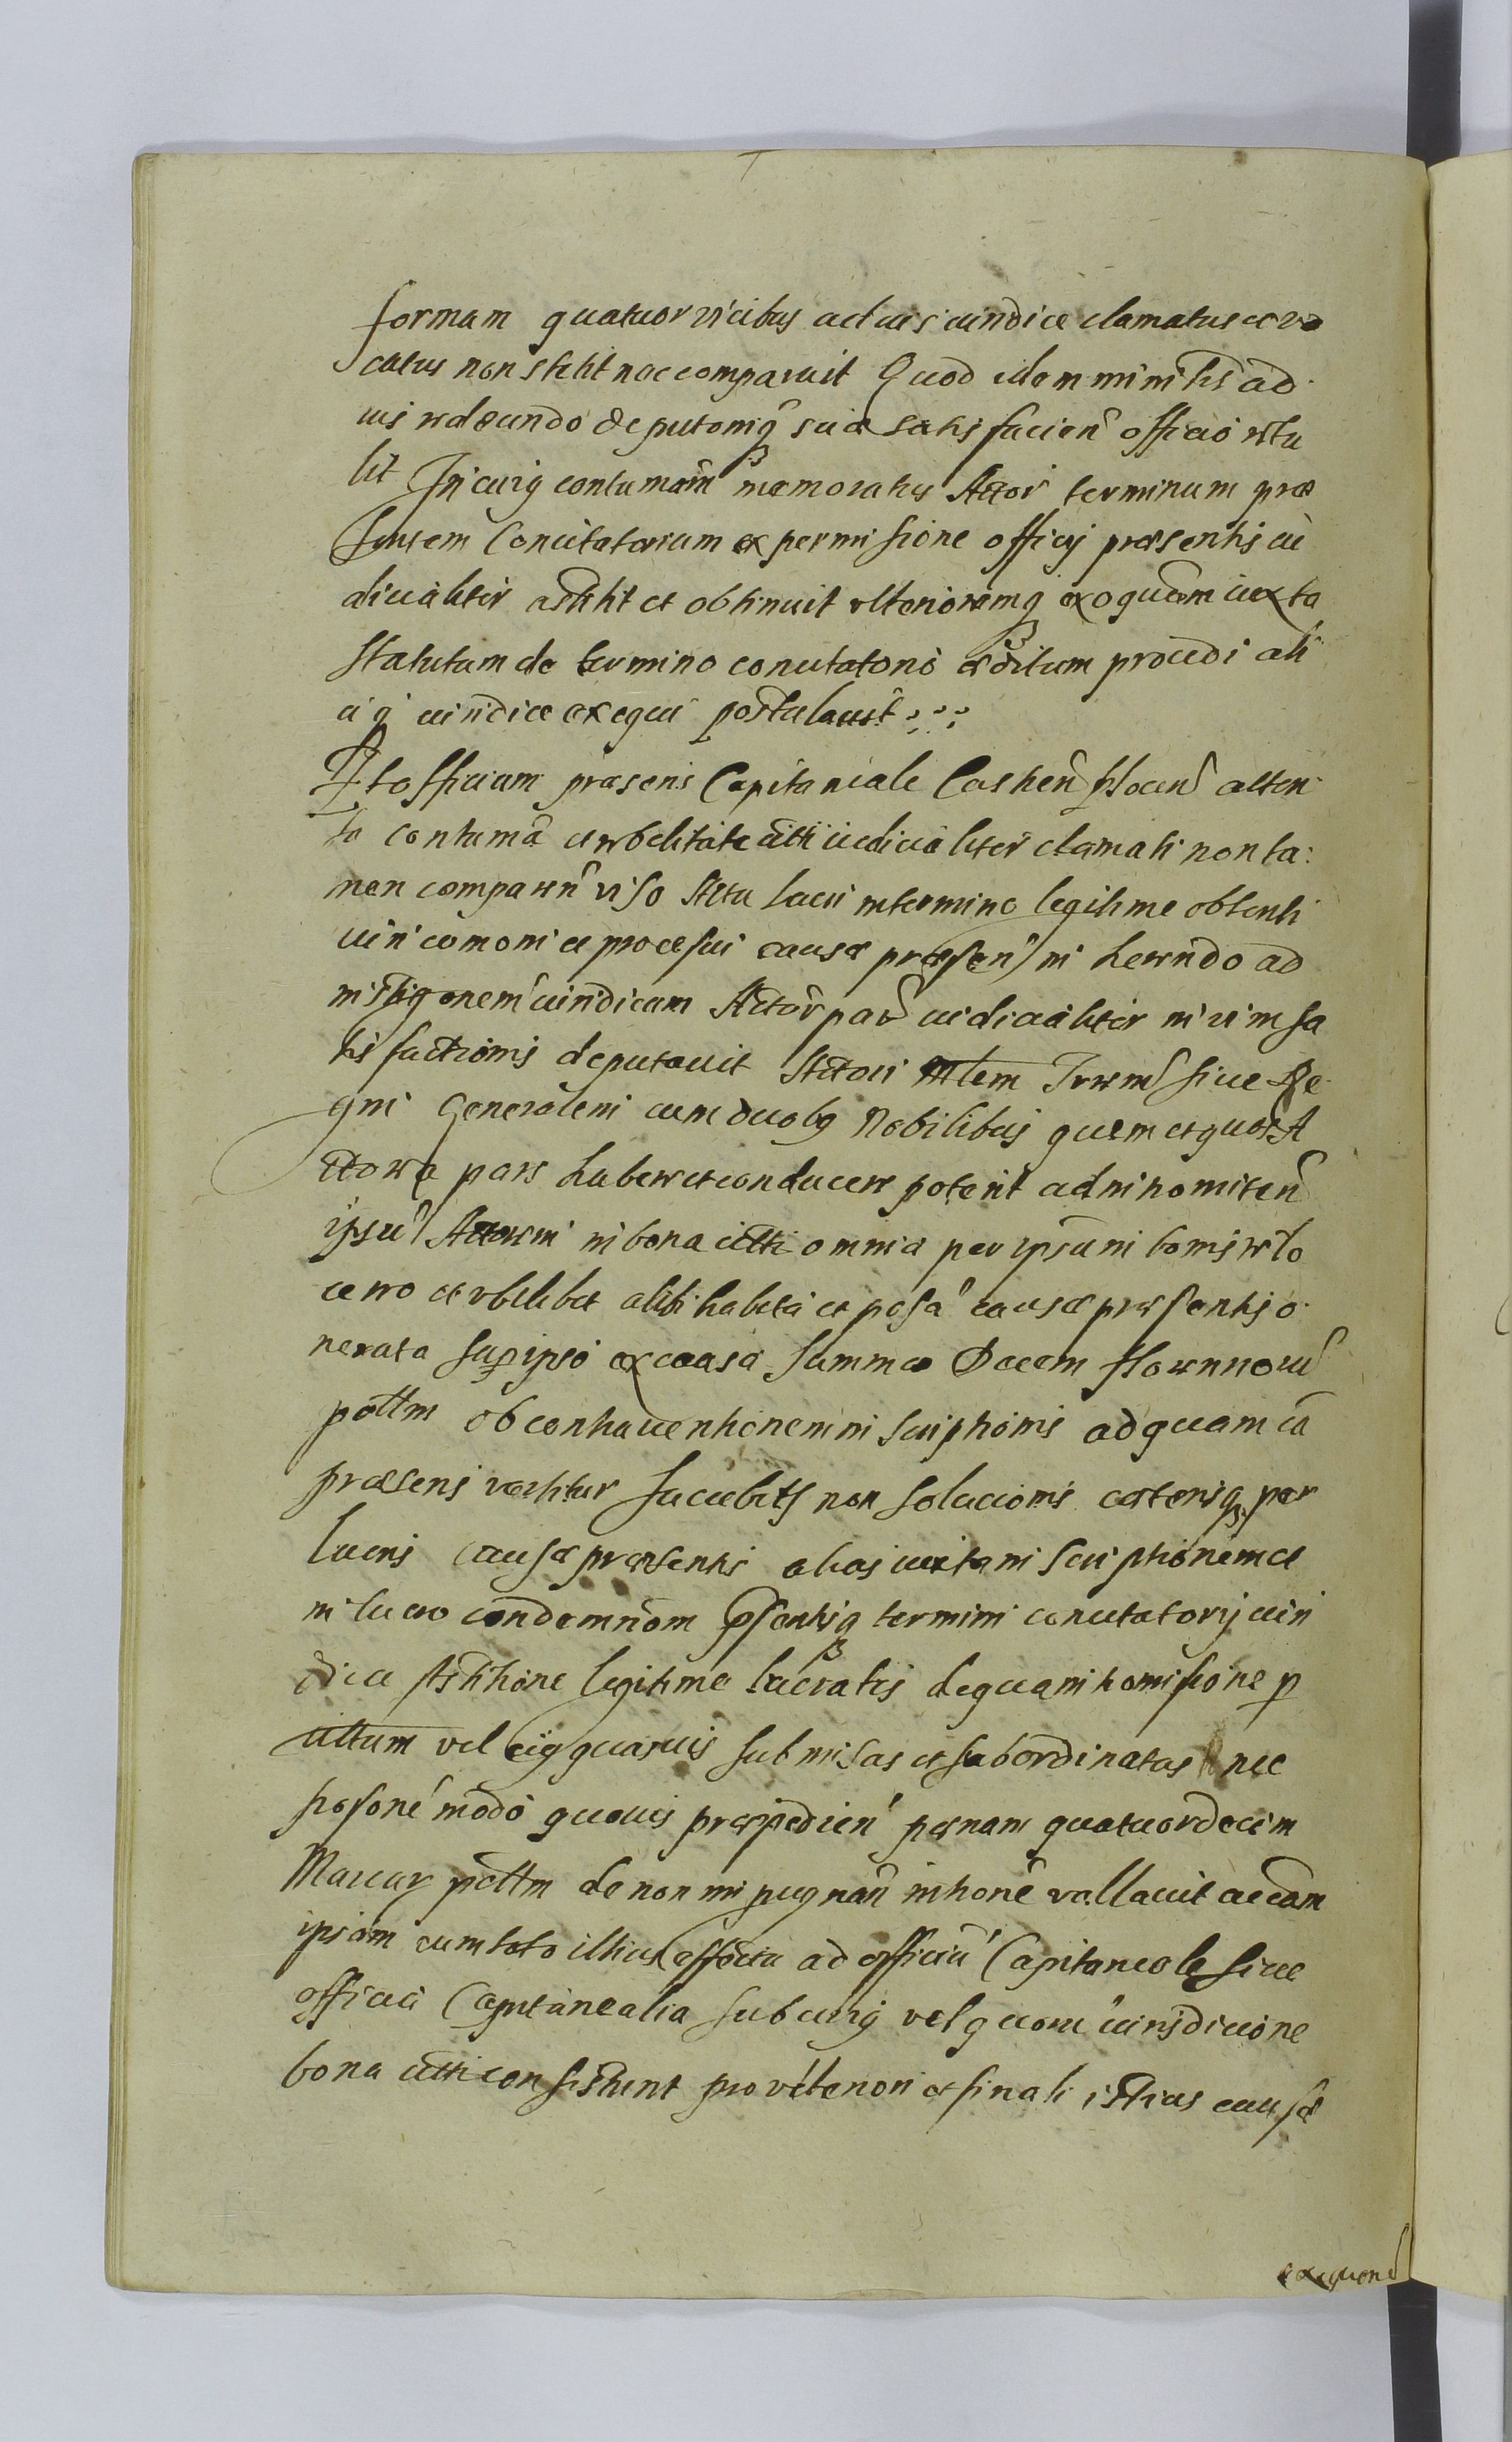 formam quatuor vicibus ad ius iuridice clamatus et vo
catus non stetit nec comparuit Quod idem minirlis ad
ius redeundo deputoniq suae satisfacien officio retu
lit In cuiq contumam memoratus Actor terminum prae
sentem Concitatorium ex permissione officij praesentis iu
dicialiter astitit et obtinuit ulterioremq exoquem iuxta
statutum de termino concitatorio editum procedi ali
aq iuridice exequi postulavit
Et officium praesens Capitaneale Castren atten
ta contuma et rebellitate citti iudicialiter clamati non ta:
men comparen viso Actu lucri in termino legitime obtenti
iuri comoni et processui causae praesen in herendo ad
mistigonem iuridicam Actor par iudicialiter in vim sa
tisfactionis deputavit Actori Mlem Trrem sive Re
gni Generalem cum duobq Nobilibus quem et quos A
ctorea pars habere et conducere poterit ad intromiten
ipsu Actorem in bona citti omnia per ipsum in bonis
et ubilibet alibi habita et possa causae praesentis o
nerata sup ipso ex causa summae Decem florennoru
pollm ob contraventionem in scriptionis ad quam ca
praesens vertitur non solucionis caeterisq per
lucris causae praesentis alias iuxta in scriptionem et
in lucro condemnom psentisq termini concitatorij iuri
dica Astitione legitime lucratis de qua intromissione p
cittum vel eiq quasvis submissas et subordinatas nec
modo quovis praepedien paenam quatuordecim
Marcar pollm de non impugnan vallavit ac eam
ipsam cum toto illius effectu ad officiu Capitaneale sive
officia Capitanealia sub cuiq vel quoru iurisdicione
bona citti consistunt pro ulteriori et finali istius causae
exequone